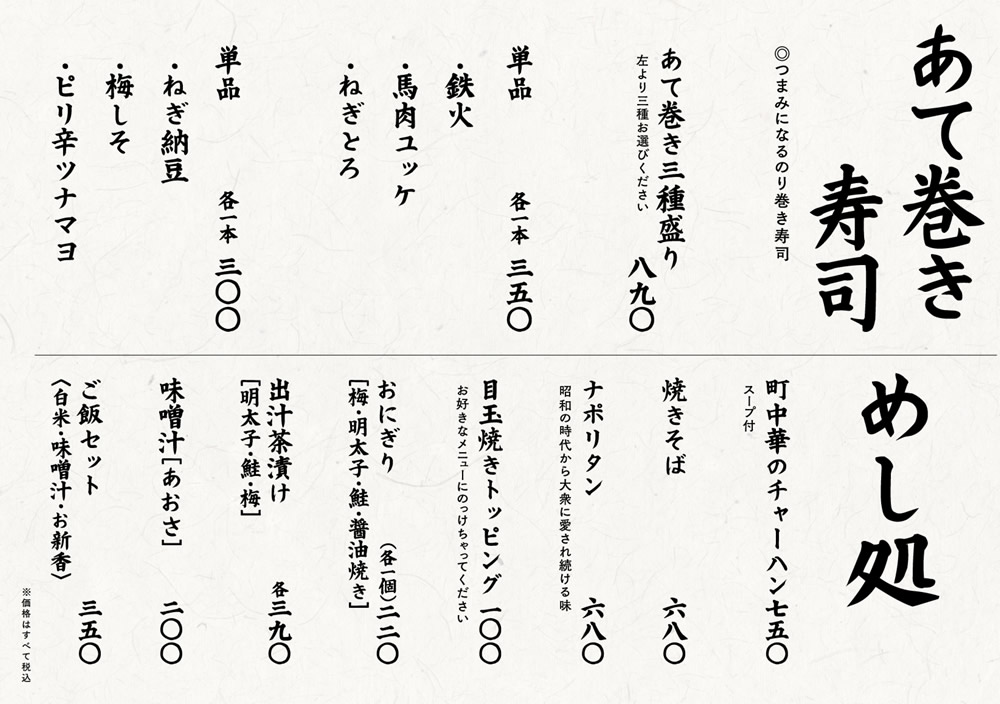 あて巻き
寿司
◎つまみになるのり巻き寿司
あて巻き三種盛り 八九〇
左より三種お選びください
単品 各一本 三五〇
・鉄火
・馬肉ユッケ
・ねぎとろ
単品 各一本 三〇〇
・ねぎ納豆
・梅しそ
・ピリ辛ツナマヨ
めし処
町中華のチャーハン 七五〇
スープ付
焼きそば 六八〇
ナポリタン 六八〇
昭和の時代から大衆に愛され続ける味
目玉焼きトッピング 一〇〇
お好きなメニューにのっけちゃってください
おにぎり (各一個)二二〇
[梅・明太子・鮭・醤油焼き]
出汁茶漬け 各三九〇
[明太子・鮭・梅]
味噌汁[あおさ] 二〇〇
ご飯セット 三五〇
〈白米・味噌汁・お新香〉
※価格はすべて税込